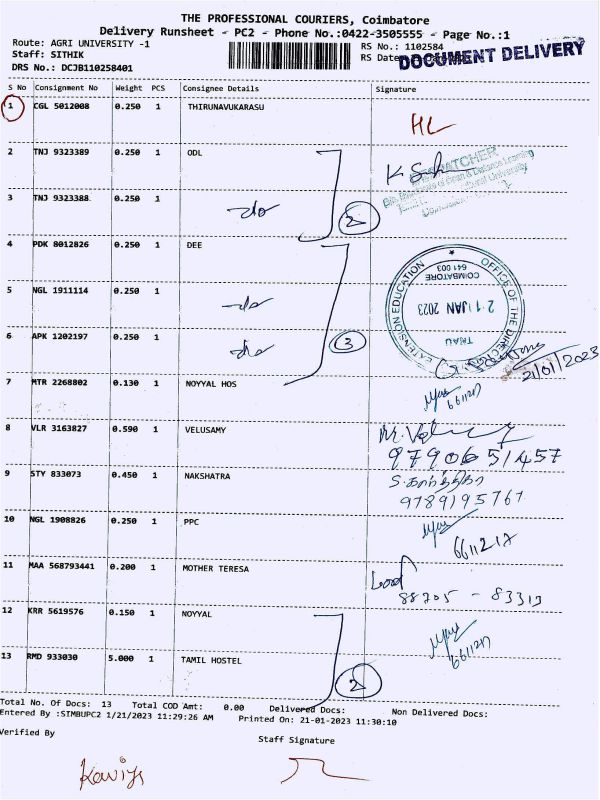 THE PROFESSIONAL COURIERS, Coimbatore
Delivery Runsheet - PC2 - Phone No.:0422-3505555 - Page No.:1
Route: AGRI UNIVERSITY -1
RS No.: 1102584
Staff: SITHIK
RS Date
DOCUMENT DELIVERY
DRS No.: DCJB110258401
S No Consignment No Weight PCS Consignee Details Signature
1 CGL 5012008 0.250 1 THIRUNAVUKARASU
HL
2 TNJ 9323389 0.250 1 ODL
3 TNJ 9323388 0.250 1 -do-
2
4 PDK 8012826 0.250 1 DEE
OFFICE OF THE
EXTENSION EDUCATION
COIMBATORE
641 003
21 JAN 2023
TNAU
5 NGL 1911114 0.250 1 -do-
6 APK 1202197 0.250 1 -do-
3
21/01/2023
7 MTR 2268802 0.130 1 NOYYAL HOS
8 VLR 3163827 0.590 1 VELUSAMY
9790651457
9 STY 833073 0.450 1 NAKSHATRA
9789195767
10 NGL 1908826 0.250 1 PPC
6611217
11 MAA 568793441 0.200 1 MOTHER TERESA
12 KRR 5619576 0.150 1 NOYYAL
13 RMD 933030 5.000 1 TAMIL HOSTEL
2
Total No. Of Docs: 13 Total COD Amt: 0.00 Delivered Docs: Non Delivered Docs:
Entered By :SIMBUPC2 1/21/2023 11:29:26 AM Printed On: 21-01-2023 11:30:10
Verified By
Staff Signature